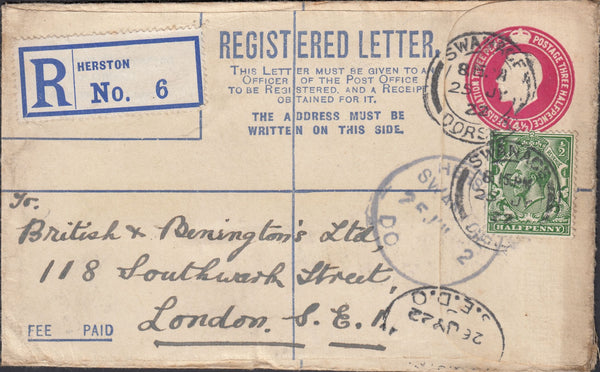 REGISTERED LETTER.
THIS LETTER MUST BE GIVEN TO AN
OFFICER OF THE POST OFFICE
TO BE REGISTERED, AND A RECEIPT
OBTAINED FOR IT.
THE ADDRESS MUST BE
WRITTEN ON THIS SIDE.
R
HERSTON
No. 6
POSTAGE THREE HALFPENCE
REGISTRATION
SWANAGE
25 JY
DORSET
SWANAGE
HALFPENNY
To.
British & Benington's Ltd,
118 Southwark Street,
London. S. E. 1.
FEE PAID
S.E.D.O.
26 JY 22